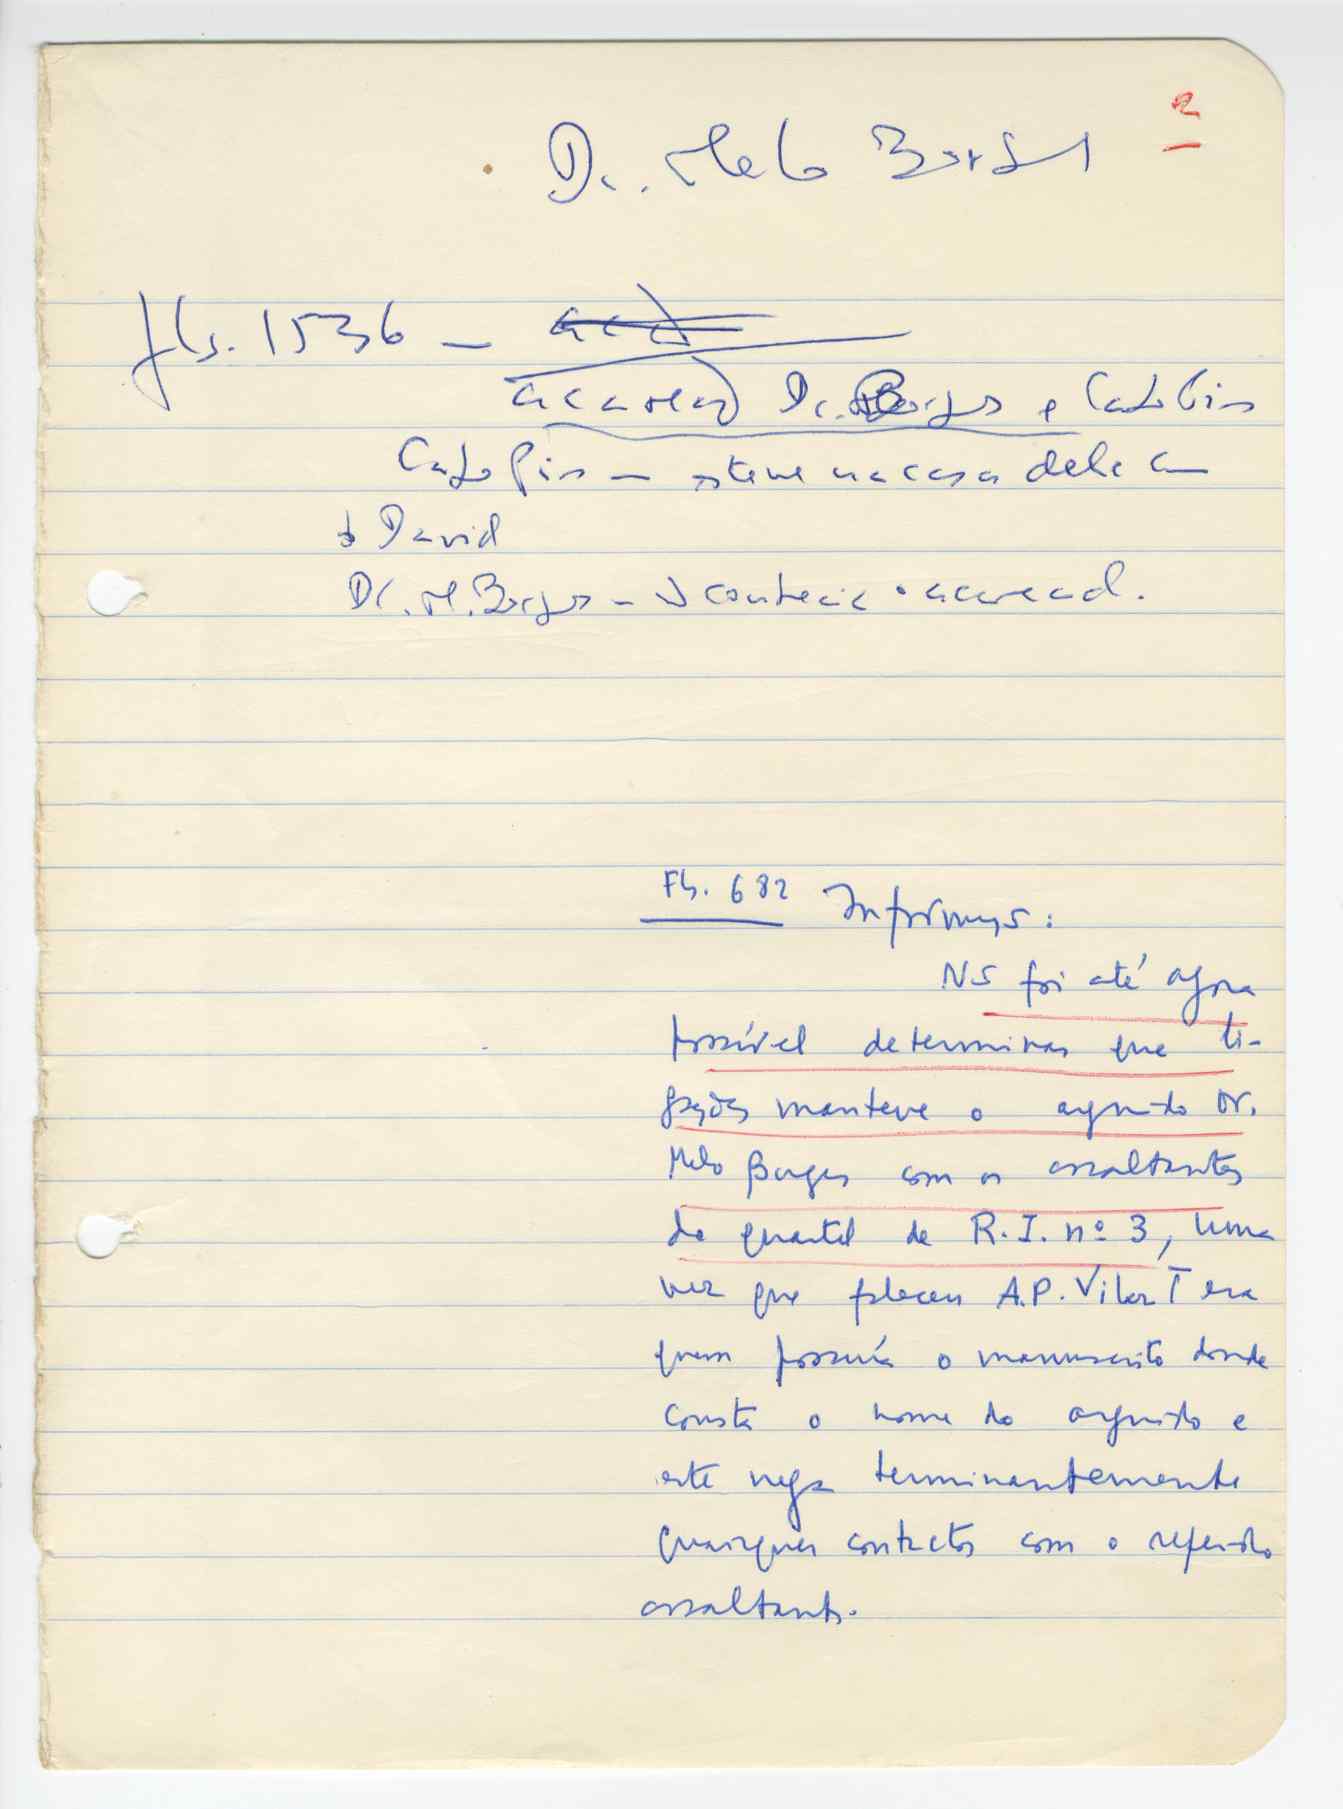 2
Dr. Melo Borges
fls. 1536 –
acareação Dr. Borges e
esteve na casa dele
David
Dr. M. Borges –
Fls. 682 Informações:
Não foi até agora
possível determinar que li-
gações manteve o arguido Dr.
Melo Borges com os assaltantes
do quartel de R.I. nº 3, uma
vez que faleceu A.P. Vilar I era
quem possuía o manuscrito donde
consta o nome do arguido e
este nega terminantemente
quaisquer contactos com o referido
assaltante.